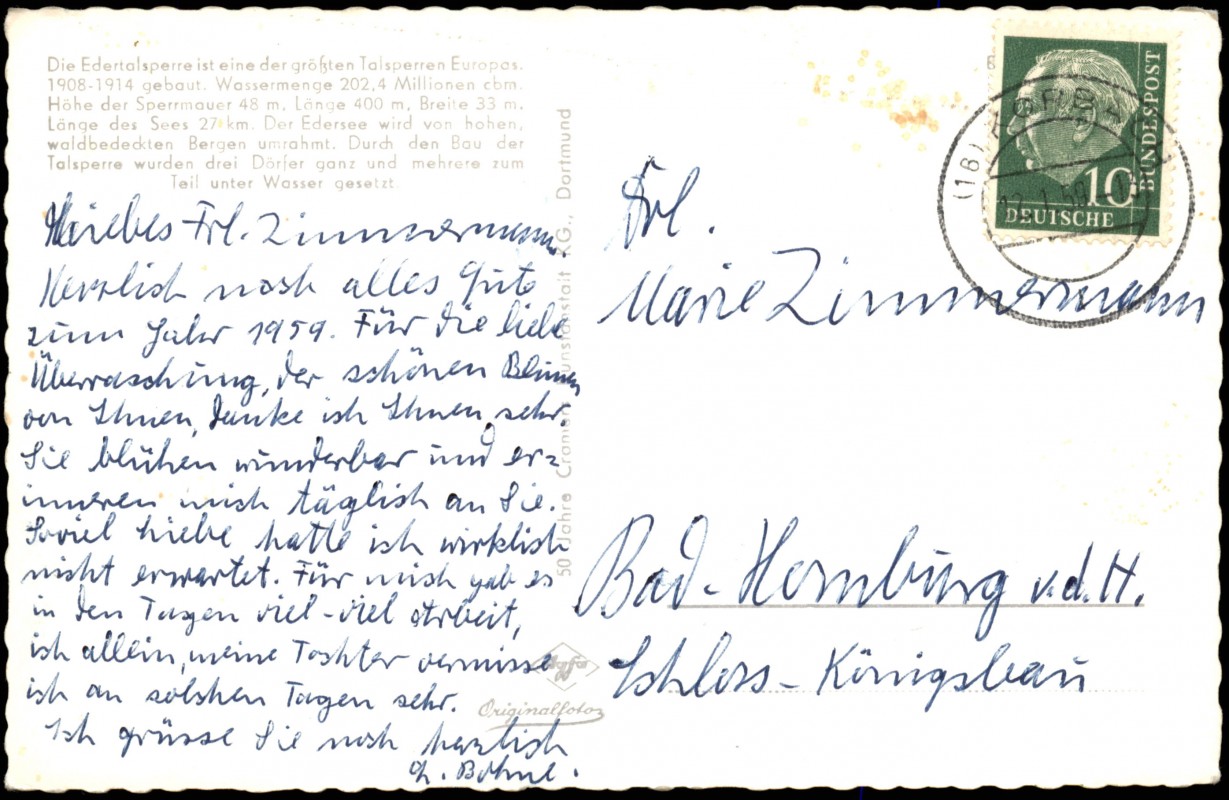 Die Edertalsperre ist eine der größten Talsperren Europas.
1908-1914 gebaut. Wassermenge 202,4 Millionen cbm.
Höhe der Sperrmauer 48 m, Länge 400 m, Breite 33 m.
Länge des Sees 27 km. Der Edersee wird von hohen,
waldbedeckten Bergen umrahmt. Durch den Bau der
Talsperre wurden drei Dörfer ganz und mehrere zum
Teil unter Wasser gesetzt.
Liebes Frl. Zimmermann.
Herzlich noch alles Gute
zum Jahr 1959. Für die liebe
Überraschung, der schönen Blumen
von Ihnen, danke ich Ihnen sehr.
Sie blühen wunderbar und er=
inneren mich täglich an Sie.
Soviel Liebe hatte ich wirklich
nicht erwartet. Für mich gab es
in den Tagen viel-viel Arbeit,
ich allein, meine Tochter vermisse
ich an solchen Tagen sehr.
Ich grüsse Sie noch herzlich
Böhne.
50 Jahre Cramers Kunstanstalt KG., Dortmund
Agfa
Originalfoto
(16)
59
10
DEUTSCHE
BUNDESPOST
Frl.
Marie Zimmermann
Bad-Homburg v.d.H.
Schloss-Königsbau